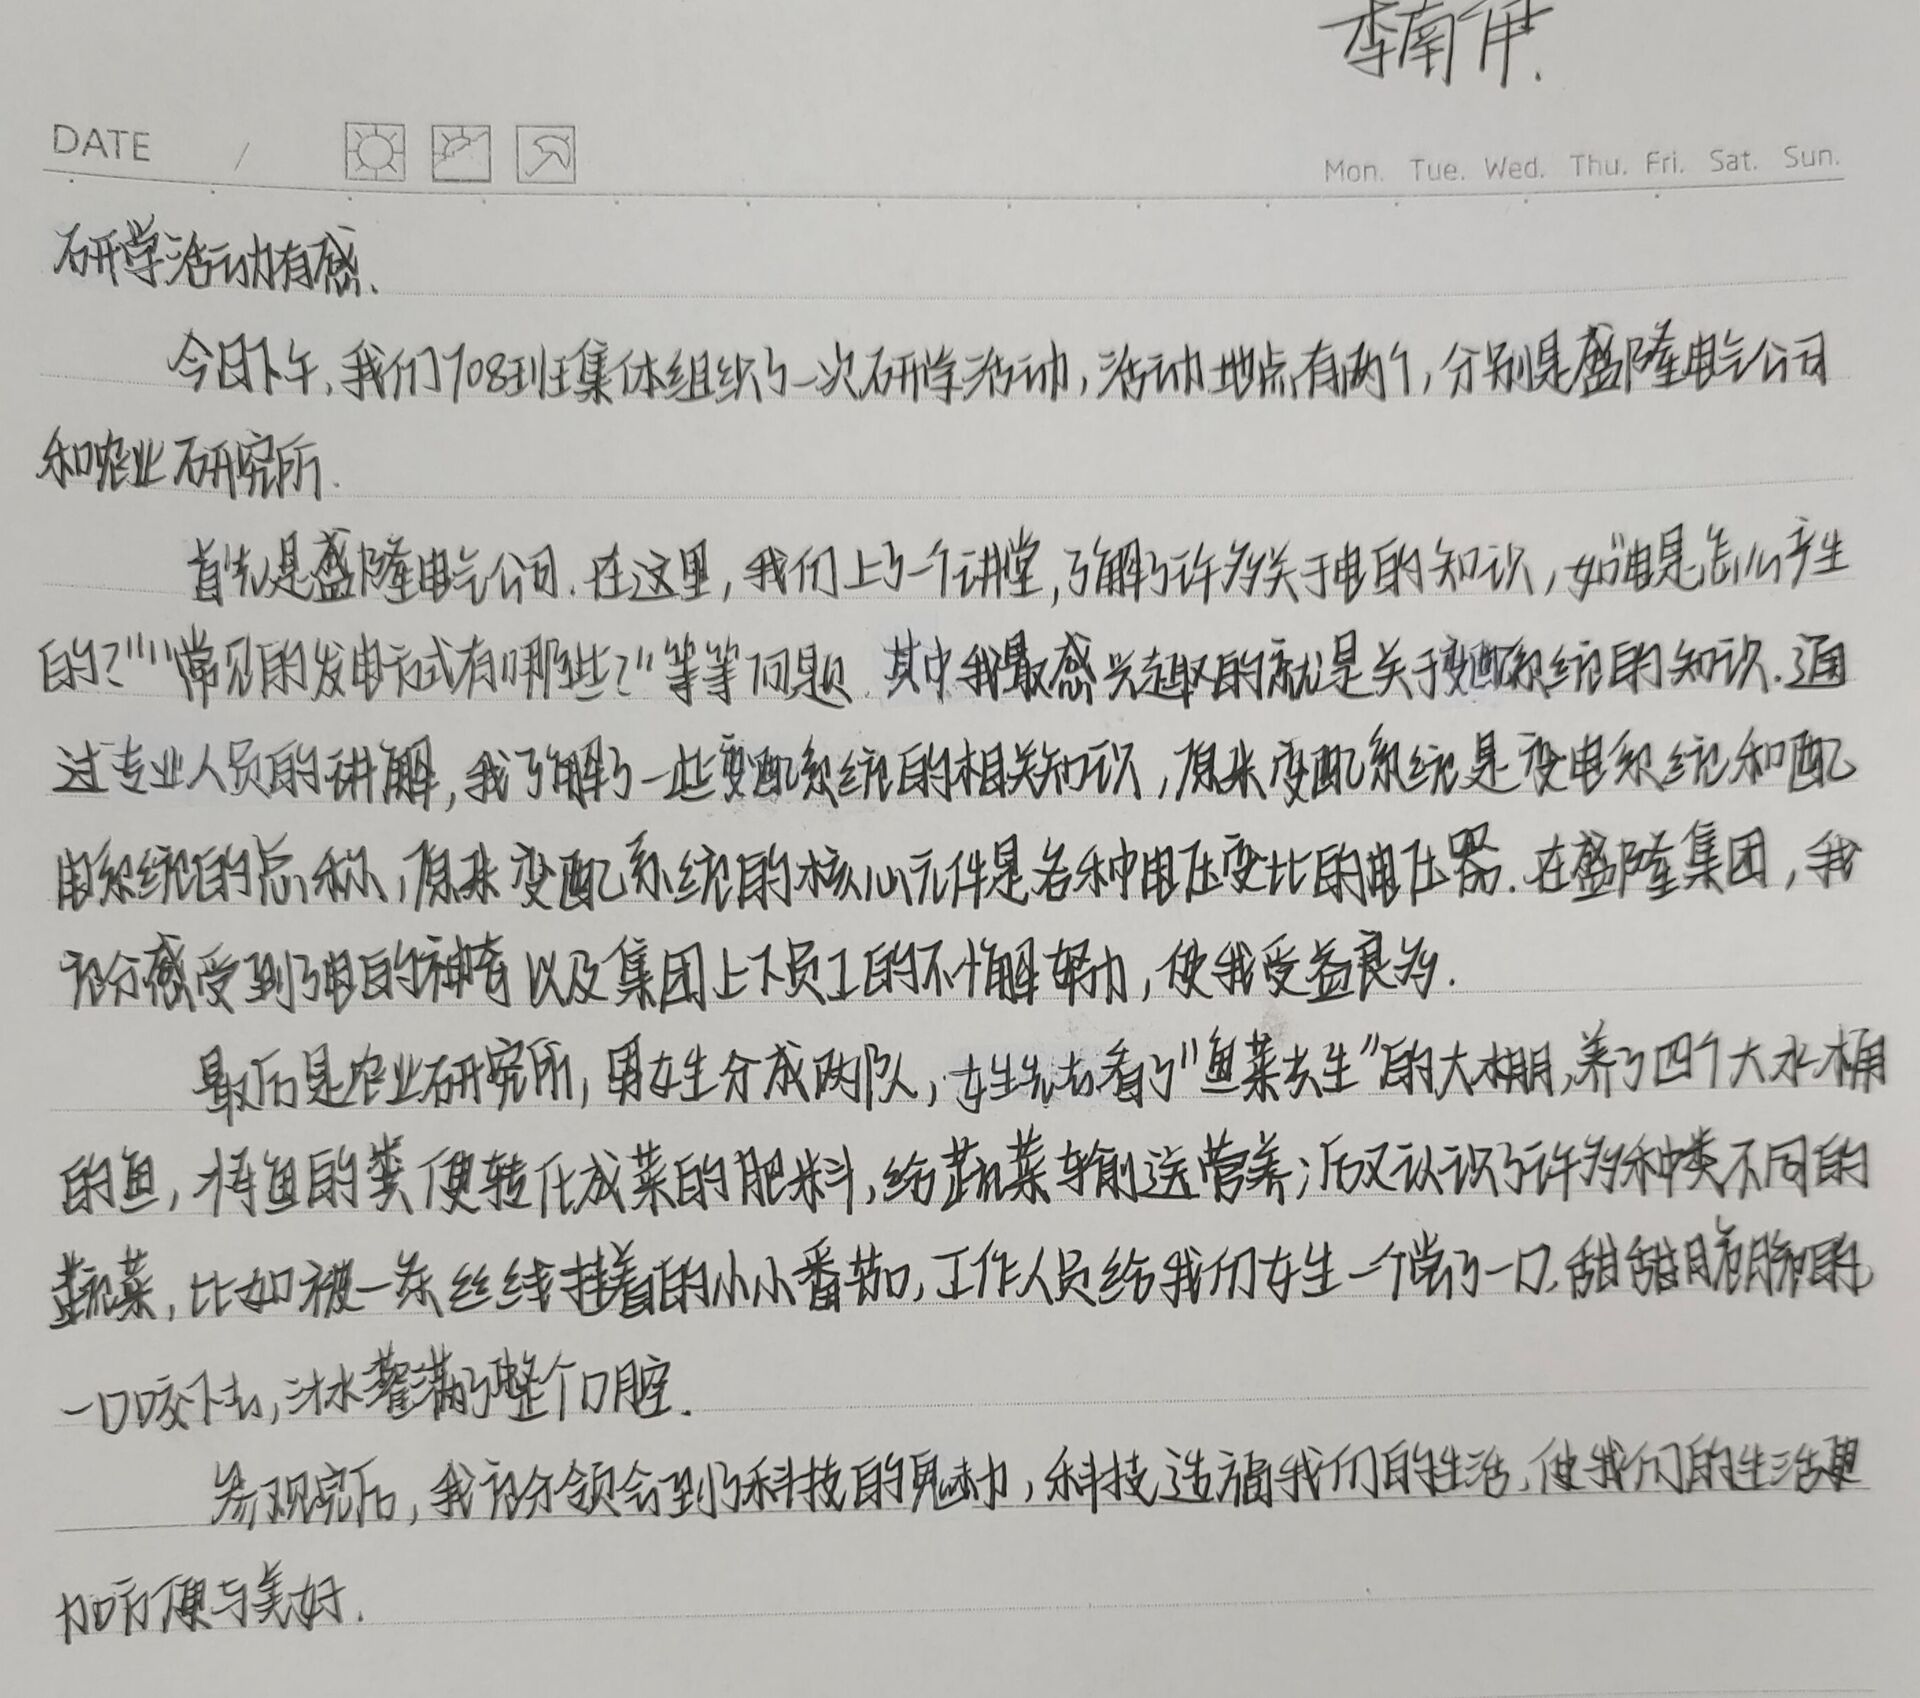 李南伊.
DATE /
Mon. Tue. Wed. Thu. Fri. Sat. Sun.
研学活动有感.
今日下午,我们708班班集体组织了一次研学活动,活动地点有两个,分别是盛隆电气公司
和农业研究所.
首先是盛隆电气公司.在这里,我们上了一个讲堂,了解了许多关于电的知识,如“电是怎么产生
的?”“常见的发电方式有哪些?”等等问题.其中我最感兴趣的就是关于变配系统的知识.通
过专业人员的讲解,我了解了一些变配系统的相关知识,原来变配系统是变电系统和配
电系统的总称,原来变配系统的核心元件是各种电压变比的电压器.在盛隆集团,我
充分感受到了电的神奇以及集团上下员工的不懈努力,使我受益良多.
最后是农业研究所,男女生分成两队,女生先去看了“鱼菜共生”的大棚,养了四个大水桶
的鱼,将鱼的粪便转化成菜的肥料,给蔬菜输送营养;后又认识了许多种类不同的
蔬菜,比如被一条丝线挂着的小小番茄,工作人员给我们女生一个尝了一口.甜甜脆脆的
一口咬下去,汁水灌满了整个口腔.
参观完后,我充分领会到了科技的魅力,科技造福我们的生活,使我们的生活更
加方便与美好.